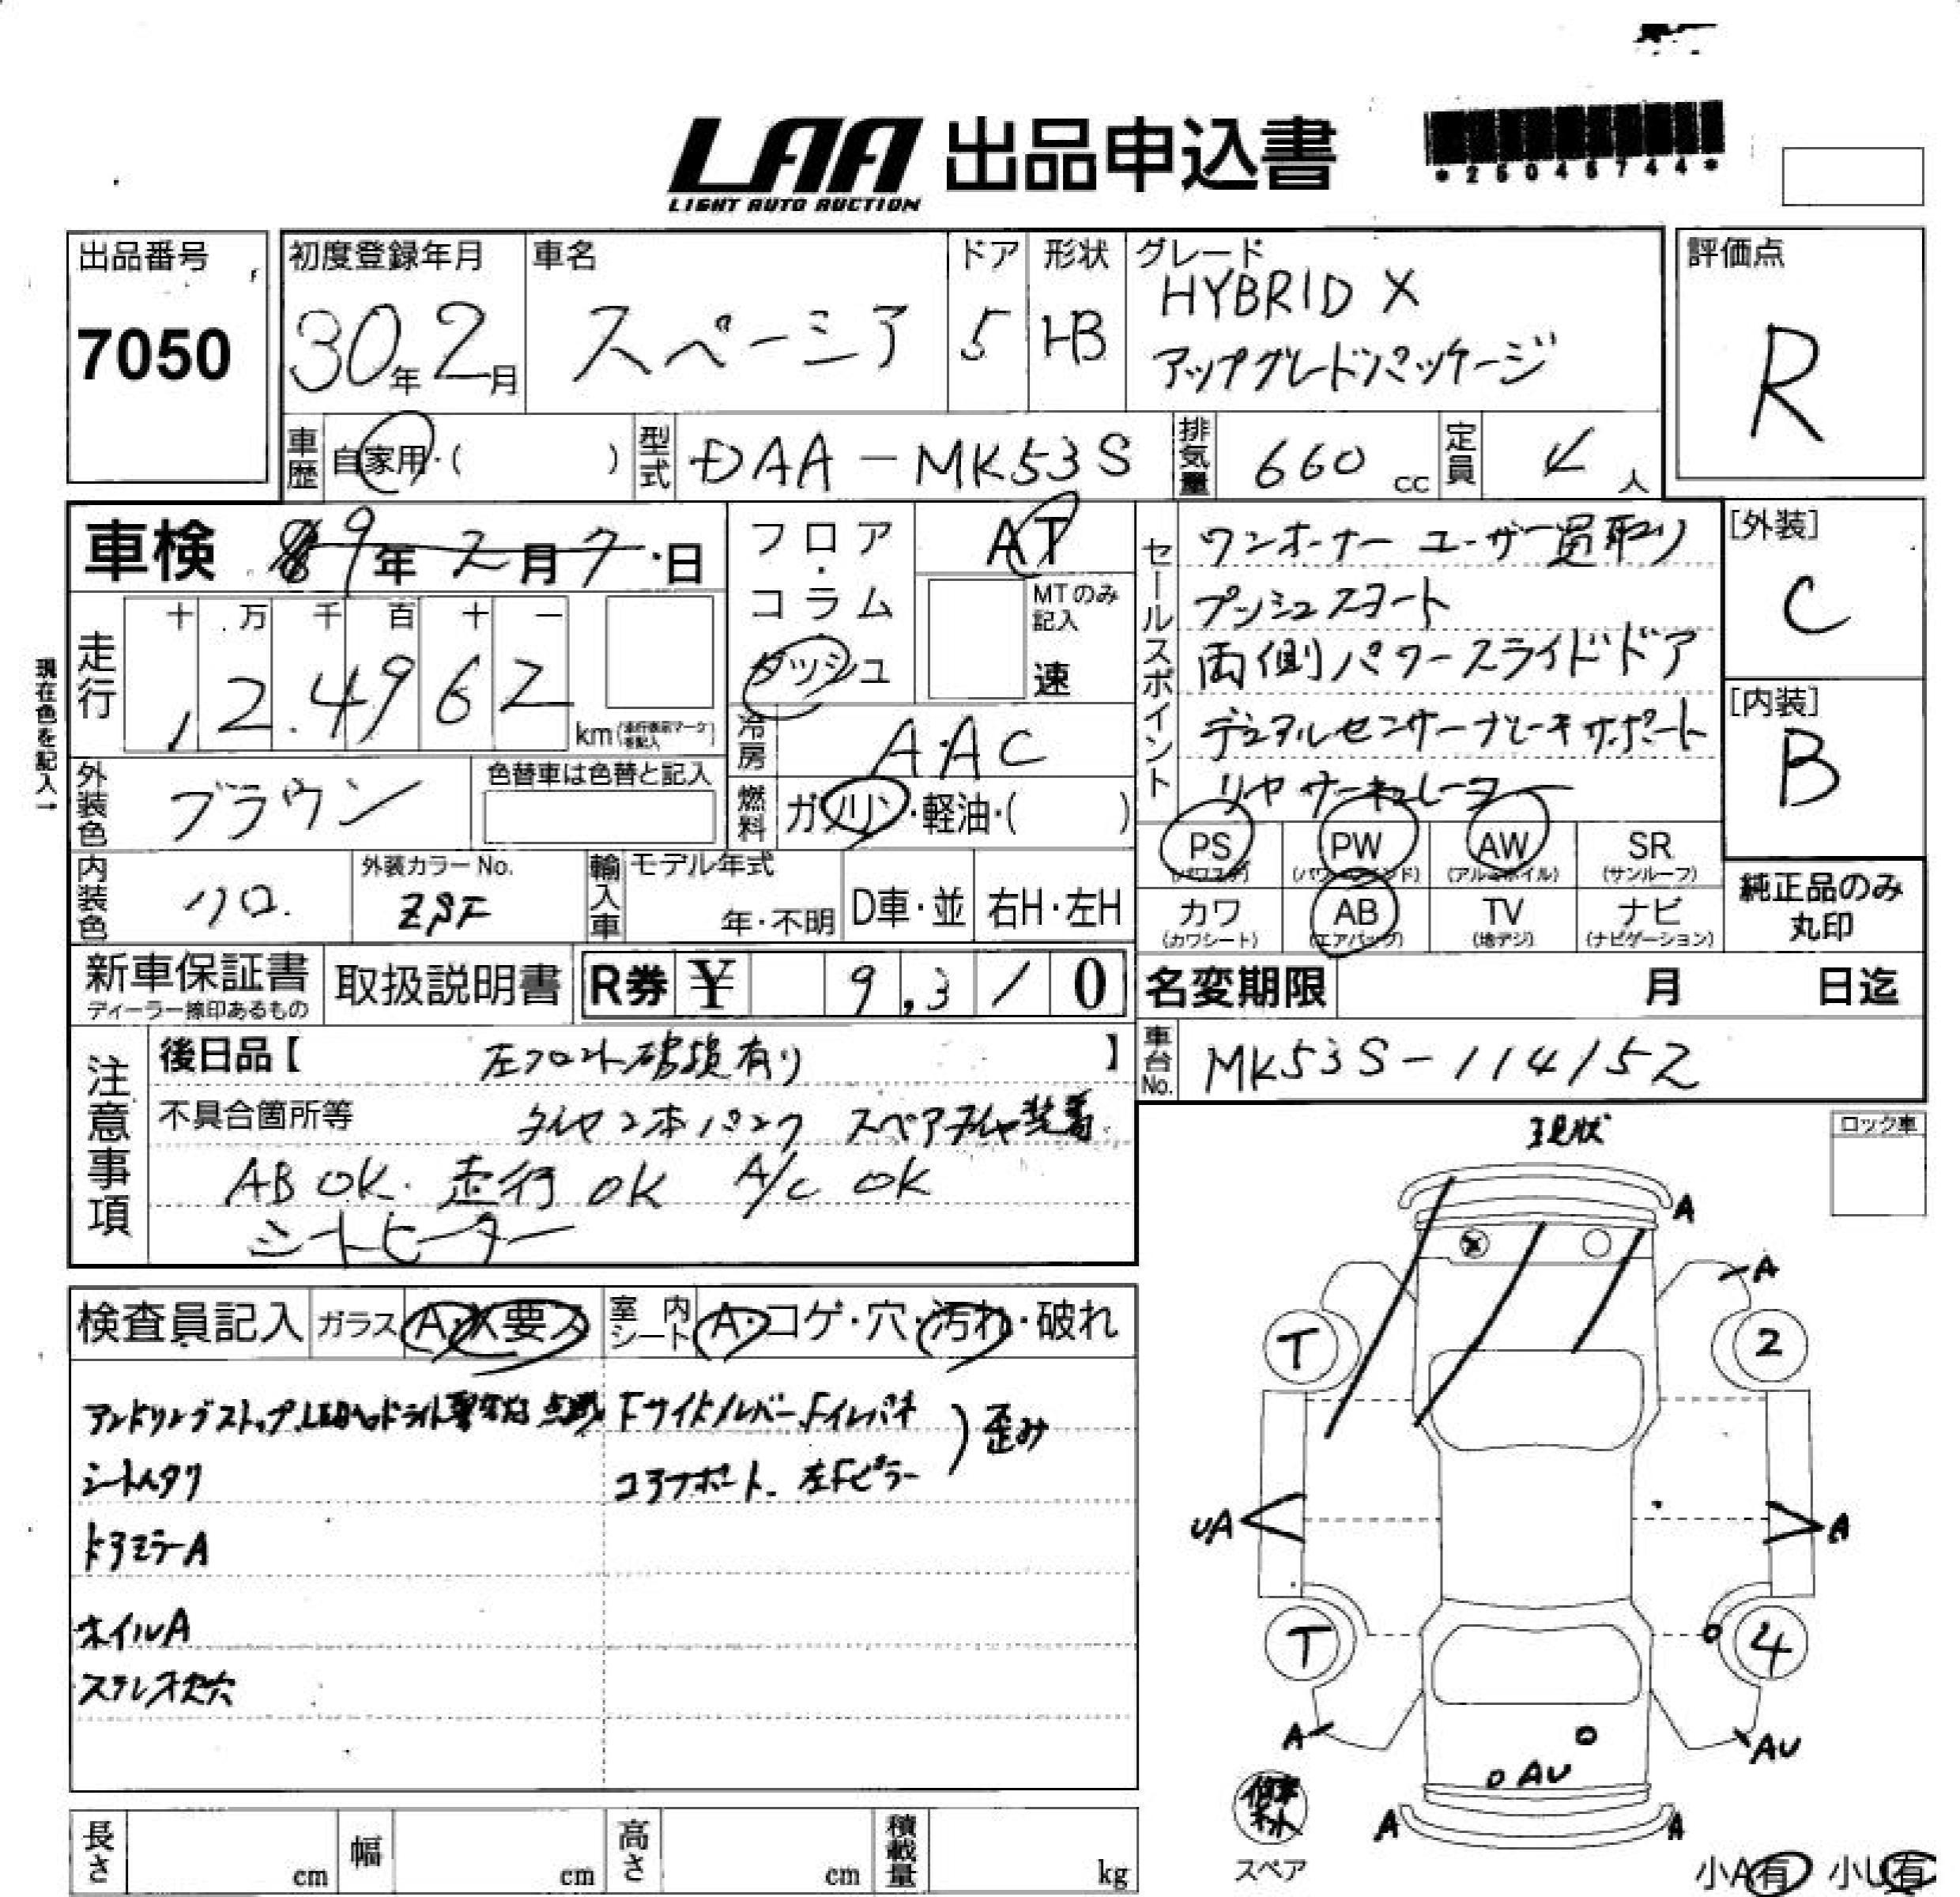 LAA 出品申込書
LIGHT AUTO AUCTION
*25045744*
出品番号
7050
初度登録年月
30年2月
車名
スペーシア
ドア
5
形状
HB
グレード
HYBRID X
アップグレードパッケージ
評価点
R
車歴
自家用・( )
型式
DAA-MK53S
排気量
660 cc
定員
4人
車検
9年2月7日
フロア
・
コラム
・
ダッシュ
AT
MTのみ記入
速
セールスポイント
ワンオーナー ユーザー買取り
プッシュスタート
両側パワースライドドア
デュアルセンサーブレーキサポート
リヤサーキュレーター
[外装]
C
[内装]
B
現在色を記入→
走行
十 万 千 百 十 一
124962
km
冷房
AAC
外装色
ブラウン
色替車は色替と記入
燃料
ガソリン・軽油・( )
PS
(パワステ)
PW
(パワーウインド)
AW
(アルミホイル)
SR
(サンルーフ)
カワ
(カワシート)
AB
(エアバッグ)
TV
(地デジ)
ナビ
(ナビゲーション)
純正品のみ
丸印
内装色
クロ
外装カラーNo.
輸入車
モデル年式
年・不明
D車・並
右H・左H
新車保証書
ディーラー捺印あるもの
取扱説明書
R券 ¥ 9,310
名変期限 月 日迄
車台No.
MK53S-114152
注意事項
後日品【 左フロント破損有り 】
不具合箇所等
タイヤ2本パンク スペアタイヤ装着
AB OK. 走行 OK A/C OK
シートヒーター
現状
ロック車
検査員記入
ガラス
A・X要ス
室内シート
A・コゲ・穴・汚れ・破れ
アイドリングストップ、LEDヘッドライト
Fサイドメンバー、Fインパネ
コアサポート、左Fピラー
)歪み
シートヘタリ
ドアミラーA
ホイルA
ステレオ欠穴
A
A
T
2
UA
A
T
4
A
AU
AU
A
A
スペア
小A有 小U有
長さ cm
幅 cm
高さ cm
積載量 kg